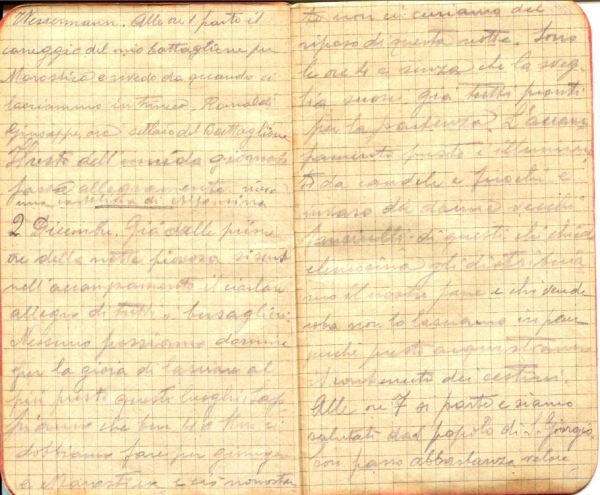 Wessermann. Alle ore 1 parto il
careggio del mio Battaglione per
Marostica e rivedo da quando ci
lasciammo in trincea, Ranaldi
Giuseppe, ora sellaio del Battaglione
Il resto dell' umida giornata
passa allegramente
una
2 Dicembre. Già dalle prime
ore della notte piovosa si sente
nell'accampamento il ciarlare
allegro di tutti i bersaglieri.
Nessuno possiamo dormire
per la gioia di lasciare al
più presto questi luoghi. Sap
piamo che ben Km ci
dobbiamo fare per giungere
a Marostica e ciò nonostan
te non ci curiamo del
riposo di questa notte. Sono
le ore 4 e senza che la sveg
lia suoni già tutti pronti
per la partenza. L'accam
pamento questo è illumina
to da candele e fuochi e
invaso da donne vecchi
fanciulli: di questi chi chied
elemosina gli distribuia
mo il nostro pane e chi vende
roba non lo lasciamo in pace
finché presto acquistiamo
il contenuto dei cestini.
Alle ore 7 si parte e siamo
salutati dal popolo di S. Giorgio.
Con passo abbastanza veloce